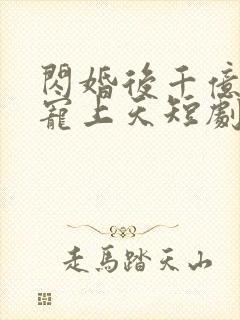 閃婚後千億
寵上天短劇
走馬踏天山